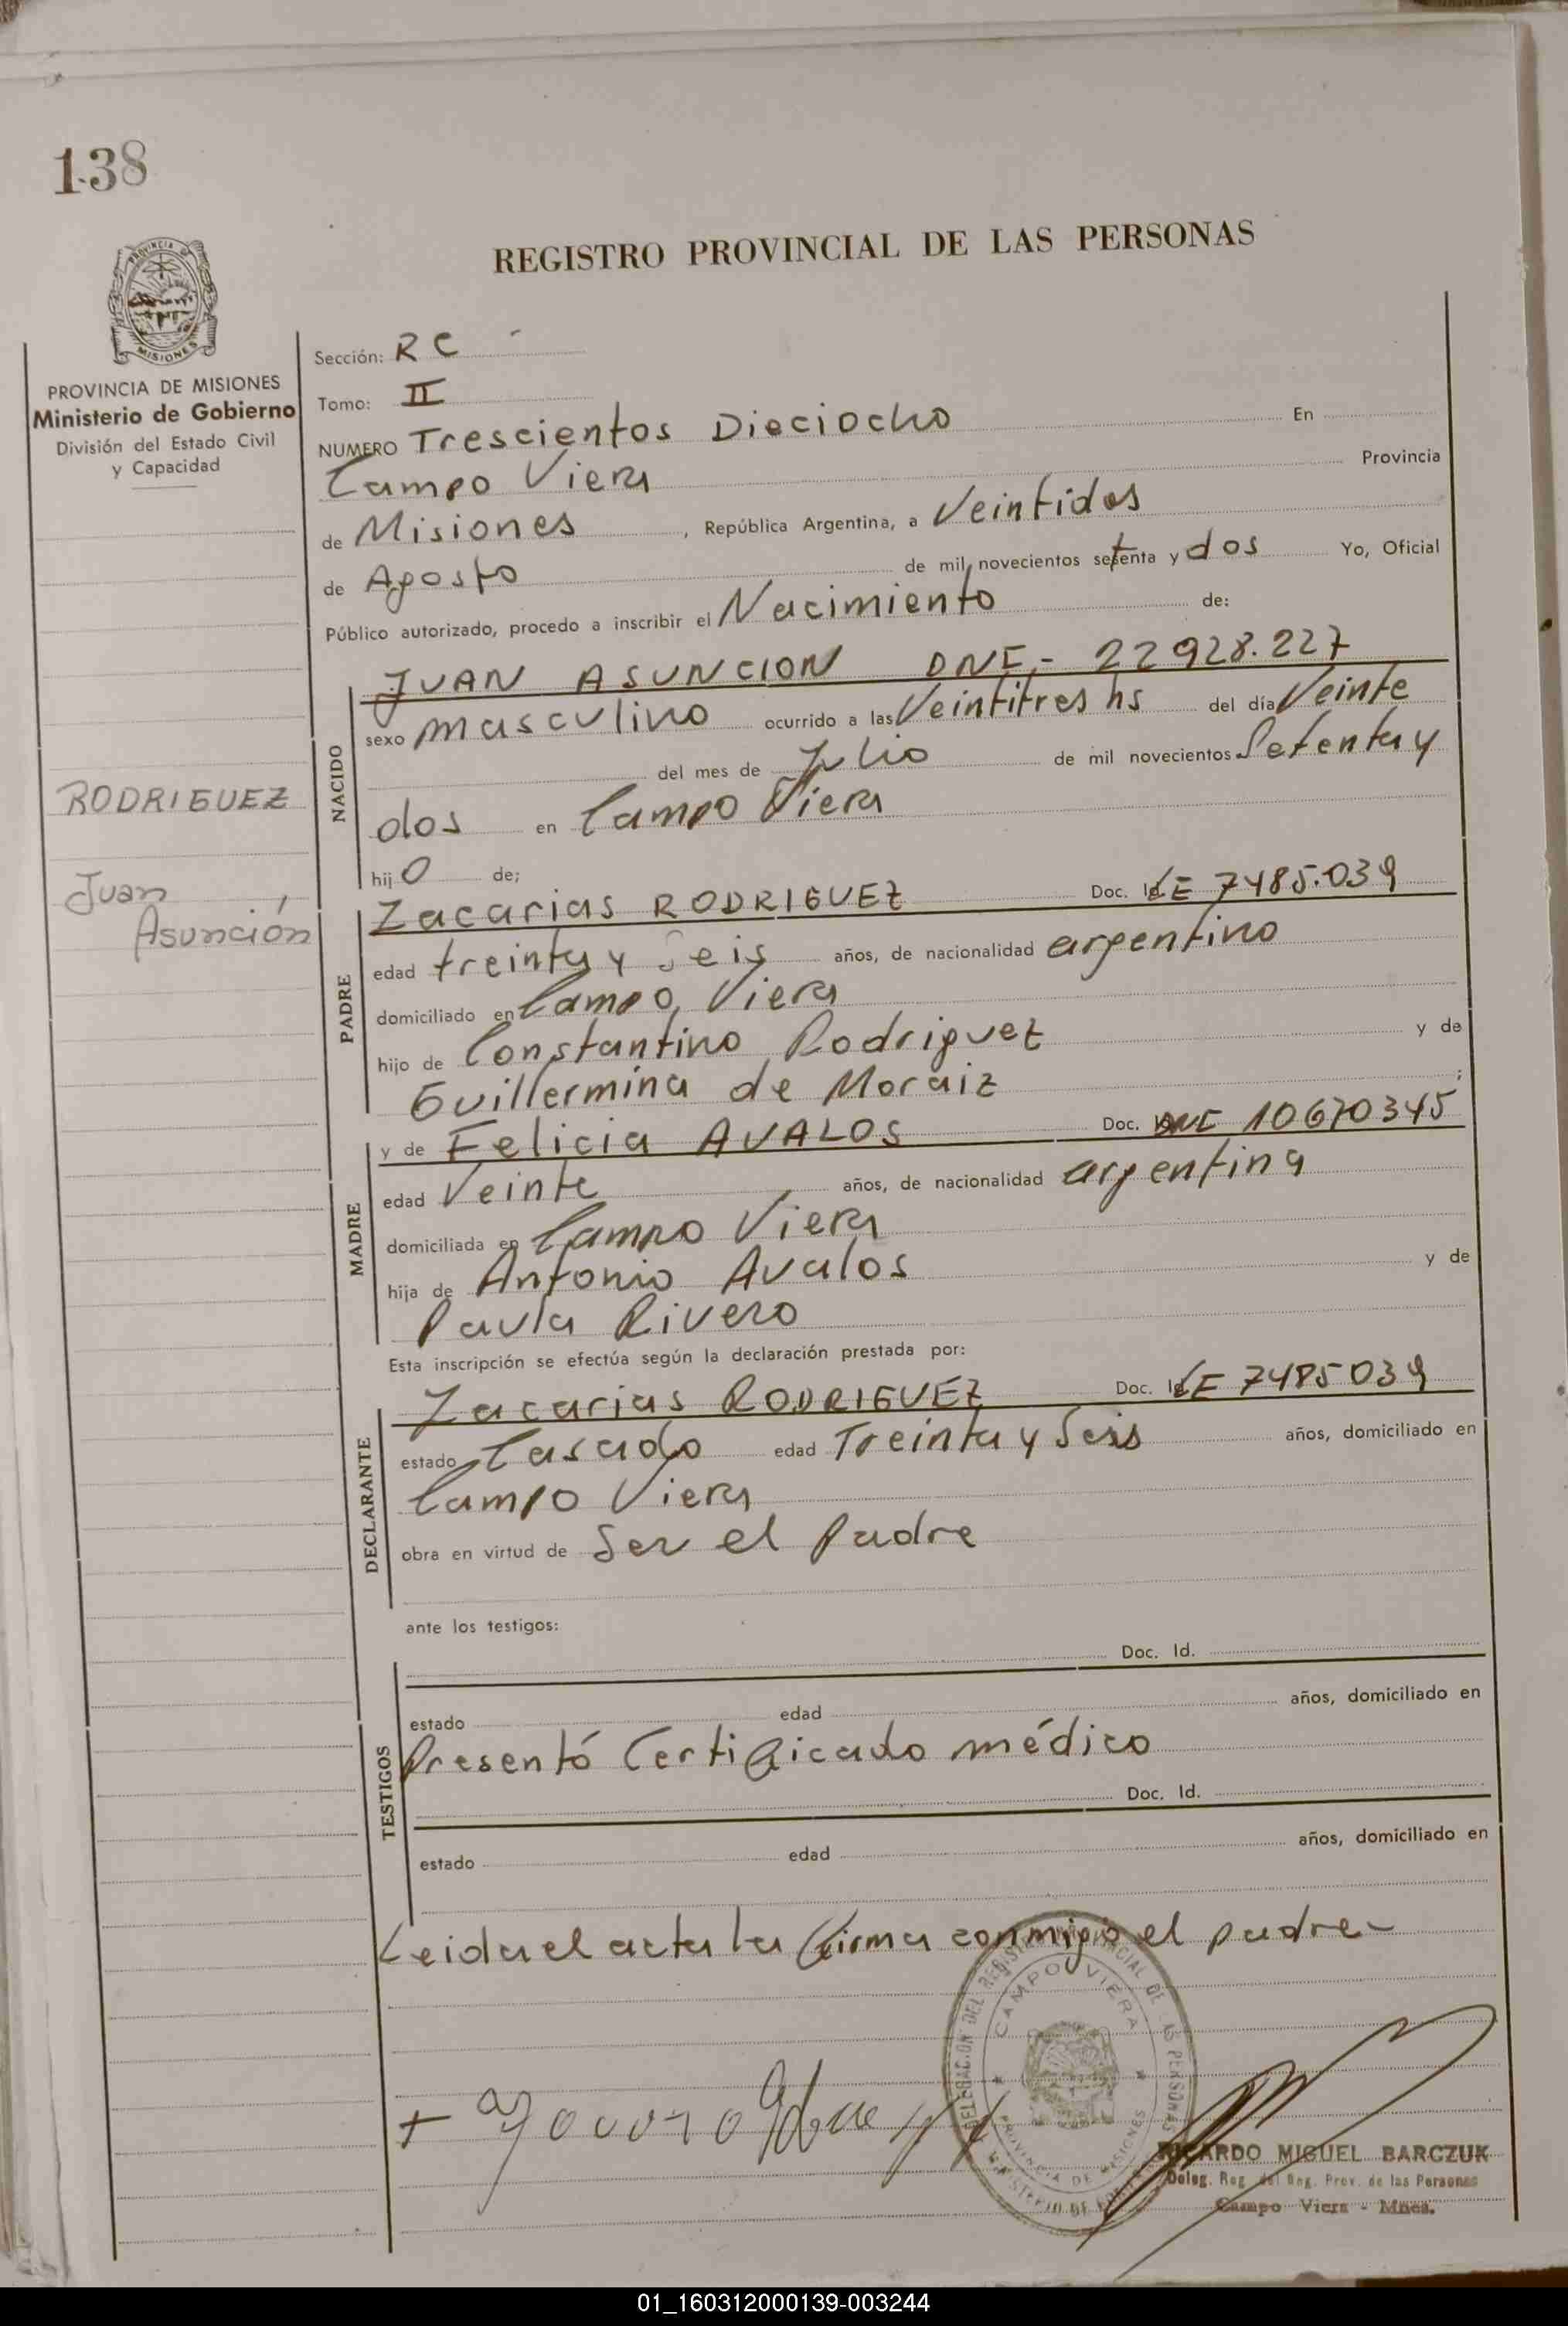 138
REGISTRO PROVINCIAL DE LAS PERSONAS
PROVINCIA DE MISIONES
MISIONES
PROVINCIA DE MISIONES
Ministerio de Gobierno
División del Estado Civil
y Capacidad
RODRIGUEZ
Juan
Asunción
Sección: R C
Tomo: II
NUMERO Trescientos Dieciocho En
Campo Viera Provincia
de Misiones , República Argentina, a Veintidos
de Agosto de mil novecientos setenta y dos Yo, Oficial
Público autorizado, procedo a inscribir el Nacimiento de:
NACIDO
JUAN ASUNCION DNI.- 22928.227
sexo masculino ocurrido a las Veintitres hs del día Veinte
del mes de Julio de mil novecientos Setenta y
dos en Campo Viera
hij o de;
PADRE
Zacarias RODRIGUEZ Doc. Id LE 7485.039
edad treinta y Seis años, de nacionalidad argentino
domiciliado en Campo Viera
hijo de Constantino Rodriguez y de
Guillermina de Moraiz ;
MADRE
y de Felicia AVALOS Doc. DNI 10670345
edad Veinte años, de nacionalidad argentina
domiciliada en Campo Viera
hija de Antonio Avalos y de
Paula Rivero
Esta inscripción se efectúa según la declaración prestada por:
DECLARANTE
Zacarias RODRIGUEZ Doc. Id LE 7485039
estado Casado edad Treinta y Seis años, domiciliado en
Campo Viera
obra en virtud de Ser el Padre
ante los testigos:
TESTIGOS
Doc. Id.
estado edad años, domiciliado en
Presentó Certificado médico
Doc. Id.
estado edad años, domiciliado en
Leida el acta la firma conmigo el padre-
DELEGACION DEL REGISTRO PROVINCIAL DE LAS PERSONAS
CAMPO VIERA
PROVINCIA DE MISIONES
MINISTERIO DE
RICARDO MIGUEL BARCZUK
Deleg. Reg. del Reg. Prov. de las Personas
Campo Viera - Mnes.
01_160312000139-003244